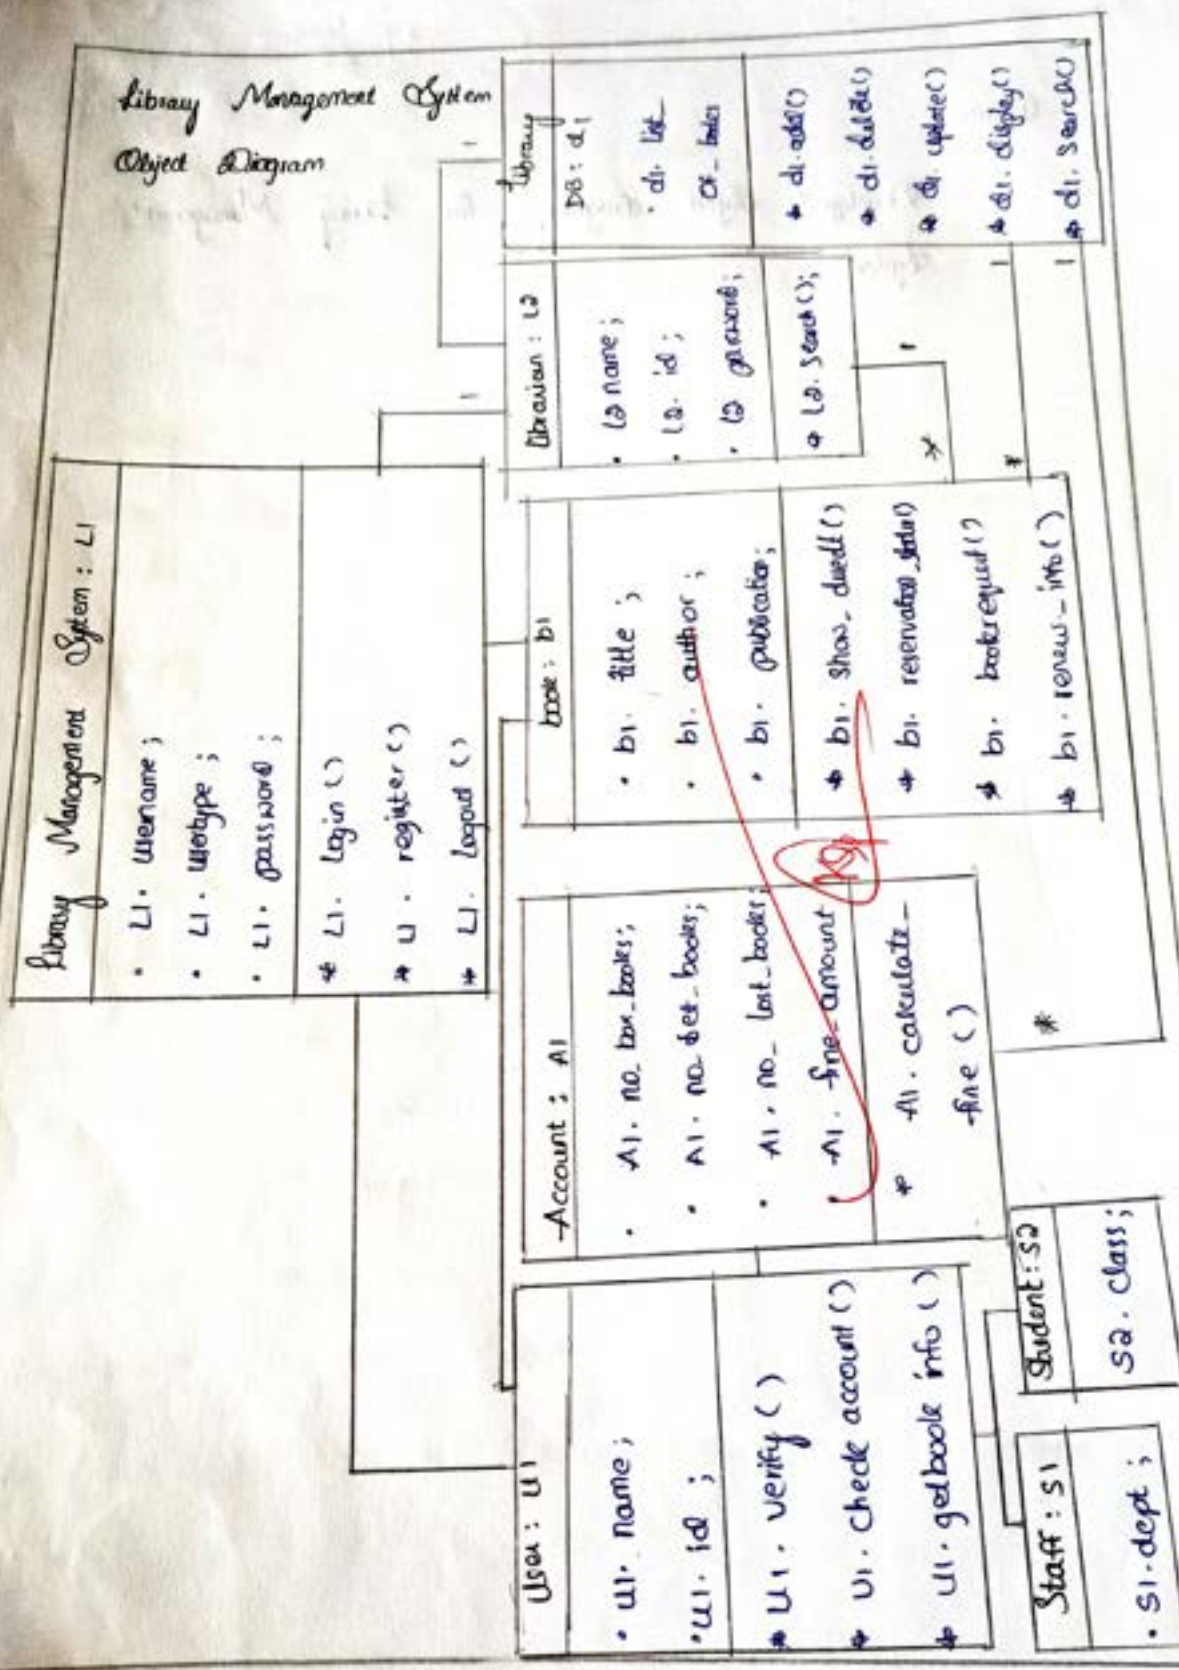 Library Management System
Object Diagram
Library Management System : L1
• L1. Username ;
• L1. Usertype ;
• L1. password ;
* L1. login ()
* L1. register ()
* L1. logout ()
User : U1
• U1. name ;
• U1. id ;
* U1. verify ()
* U1. check account ()
* U1. getbook info ()
Staff : S1
• S1. dept ;
Student : S2
S2. class ;
Account : A1
• A1. no_bor_books;
• A1. no_ret_books;
• A1. no_lost_books;
• A1. fine_amount
* A1. calculate_
fine ()
*
book : b1
• b1. title ;
• b1. author ;
• b1. publication;
* b1. show_duedt ()
* b1. reservation_status()
* b1. bookrequest ()
* b1. renew_info ()
*
*
Librarian : L2
• L2 name ;
• L2. id ;
• L2 password ;
* L2. search ();
1
1
Library
DB : d1
• d1. list_
of_books
* d1. add()
* d1. delete()
* d1. update()
* d1. display()
* d1. search()
1
1
1